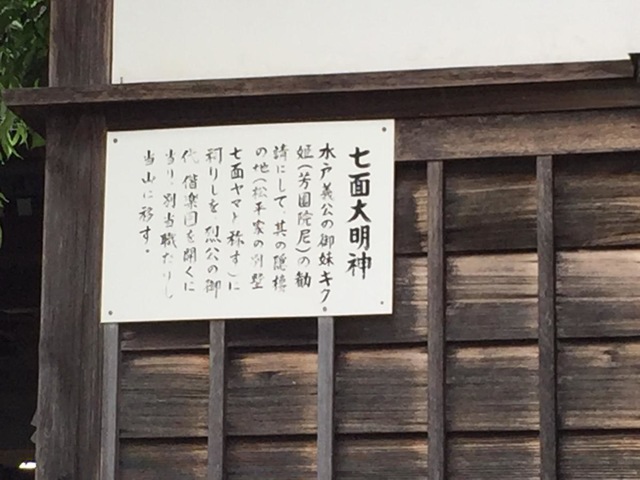 七面大明神
水戸義公の御妹キク
姫(芳園院尼)の勧
請にして、其の隠棲
の地(松平家の別墅
七面ヤマト称す)に
祠りしを、烈公の御
代 偕楽園を開くに
当り、別当職たりし
当山に移す。